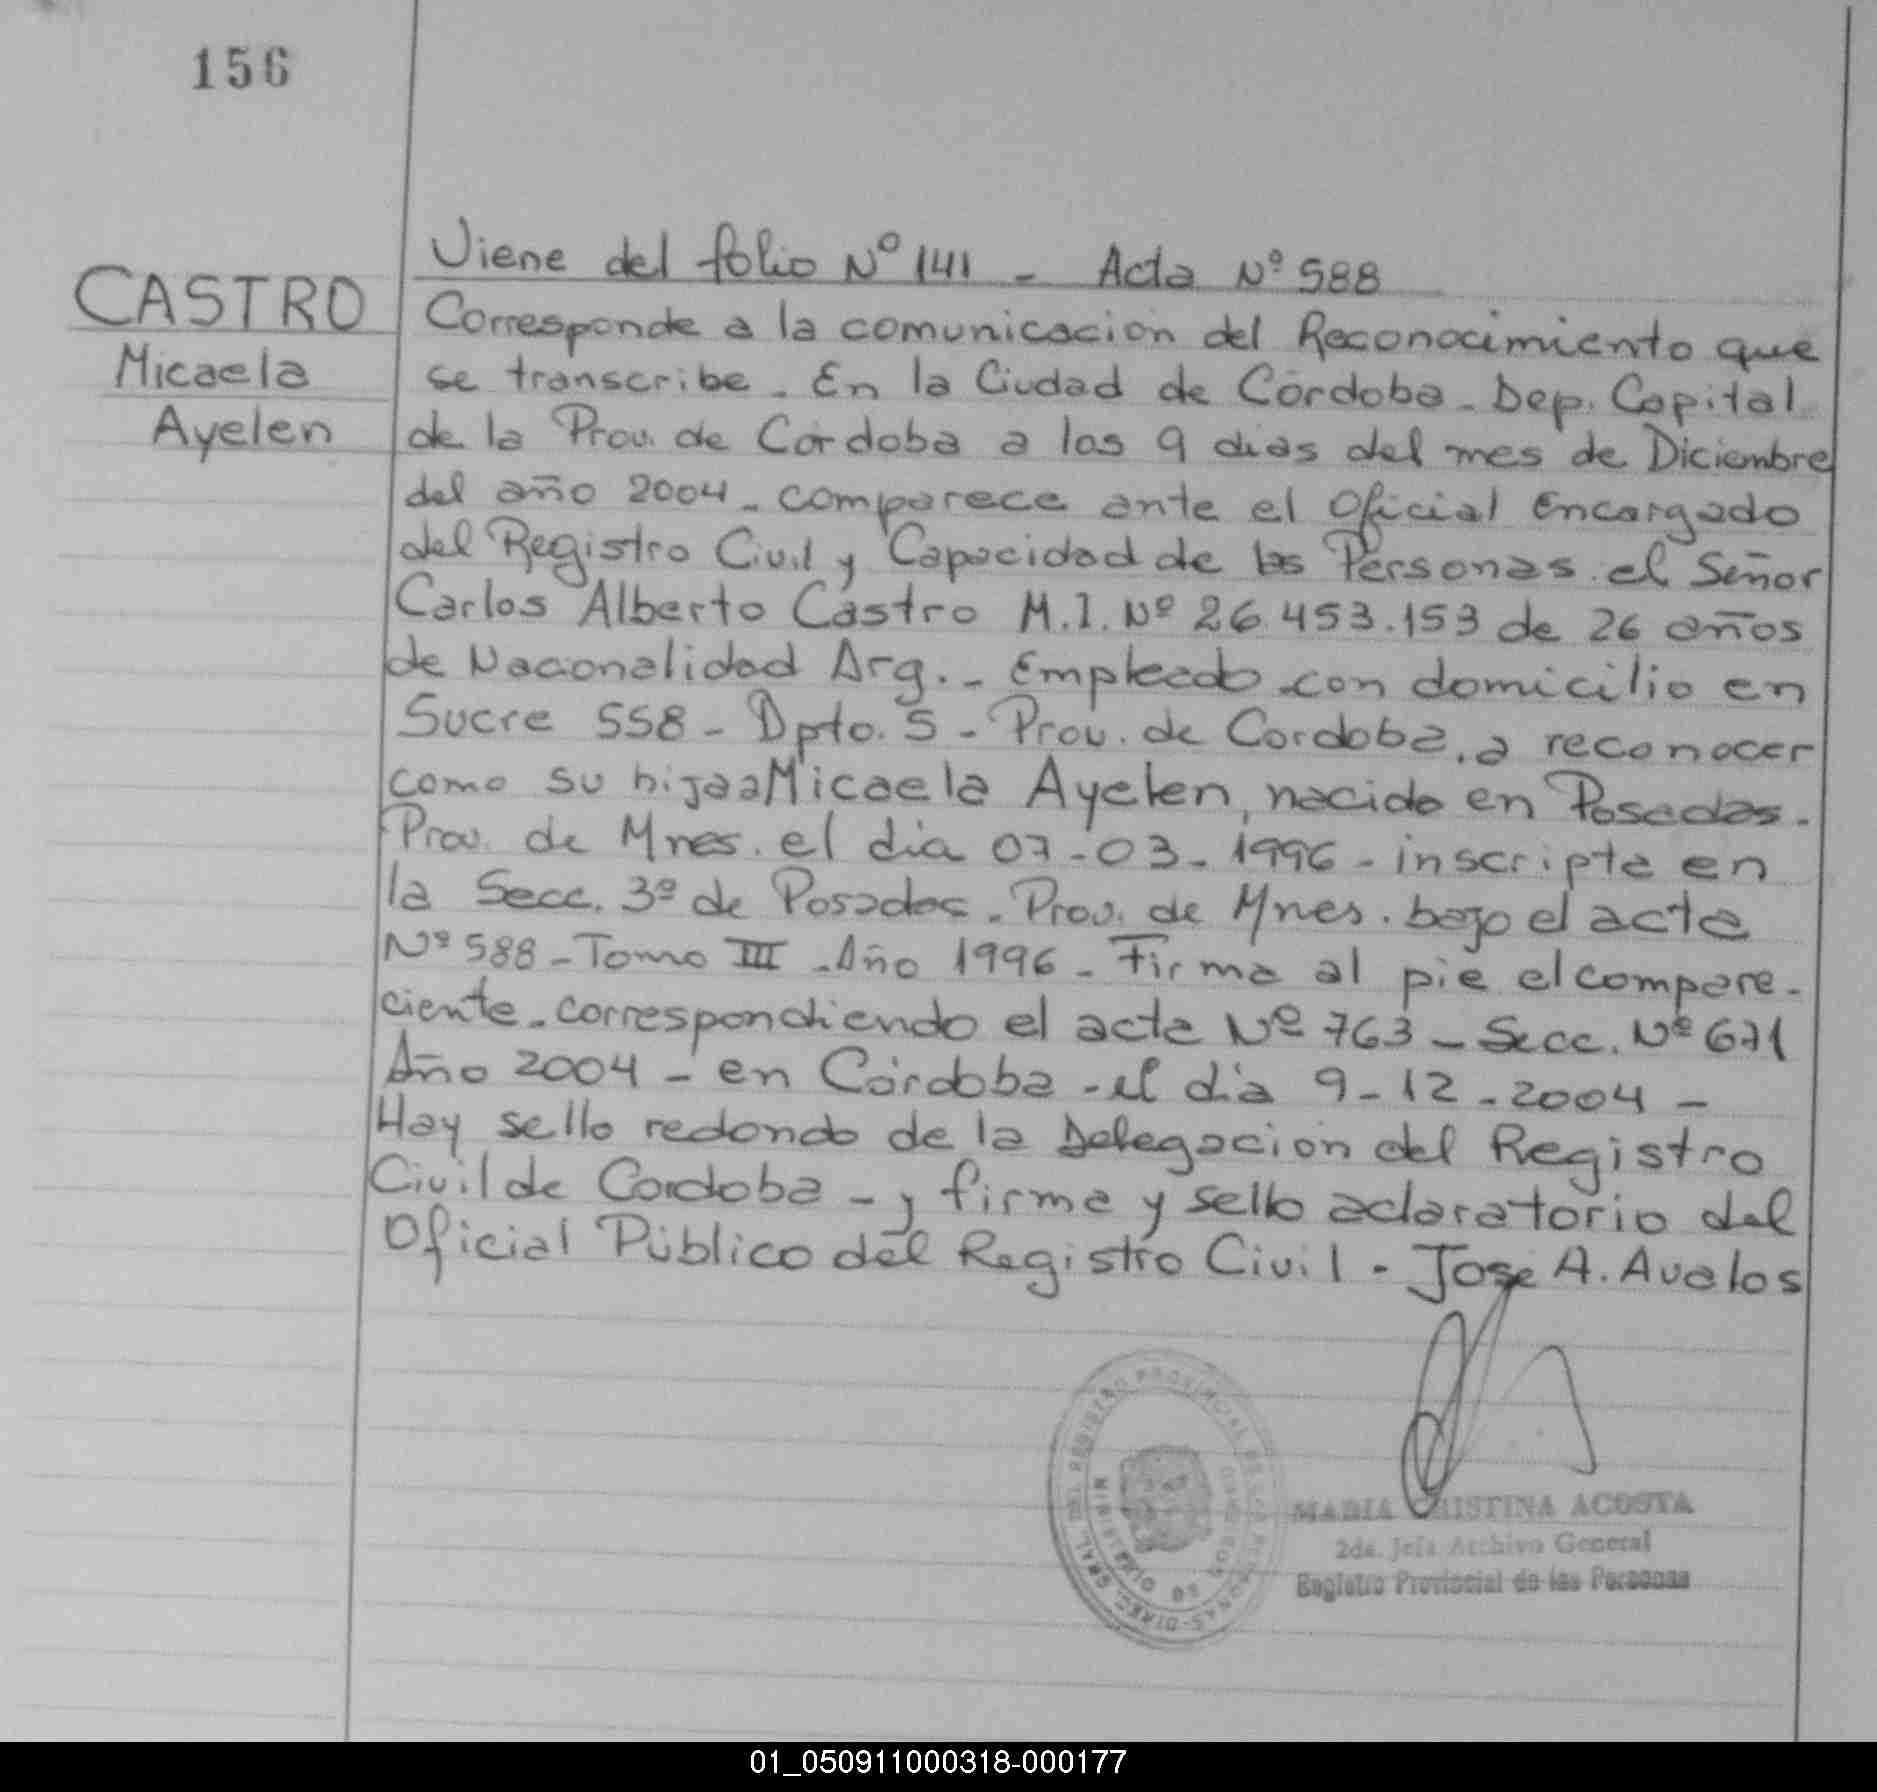 156
CASTRO
Micaela
Ayelen
Viene del folio Nº 141 - Acta Nº 588
Corresponde a la comunicación del Reconocimiento que
se transcribe. En la Ciudad de Córdoba - Dep. Capital
de la Prov. de Córdoba a los 9 dias del mes de Diciembre
del año 2004 - comparece ante el Oficial Encargado
del Registro Civil y Capacidad de las Personas el Señor
Carlos Alberto Castro M.I. Nº 26.453.153 de 26 años
de Nacionalidad Arg. - Empleado con domicilio en
Sucre 558 - Dpto. 5 - Prov. de Cordoba, a reconocer
como su hija a Micaela Ayelen, nacido en Posadas.
Prov. de Mnes. el dia 07-03-1996 - inscripta en
la Secc. 3ª de Posadas. Prov. de Mnes. bajo el acta
Nº 588 - Tomo III - Año 1996 - Firma al pie el compare-
ciente - correspondiendo el acta Nº 763 - Secc. Nº 671
Año 2004 - en Córdoba - el dia 9-12-2004 -
Hay sello redondo de la Delegación del Registro
Civil de Cordoba - y firma y sello aclaratorio del
Oficial Público del Registro Civil - José A. Avalos
MARIA CRISTINA ACOSTA
2da. Jefa Archivo General
Registro Provincial de las Personas
REGISTRO PROVINCIAL DE LAS PERSONAS - DIREC. GRAL. DEL
MINISTERIO DE GOBIERNO
01_050911000318-000177